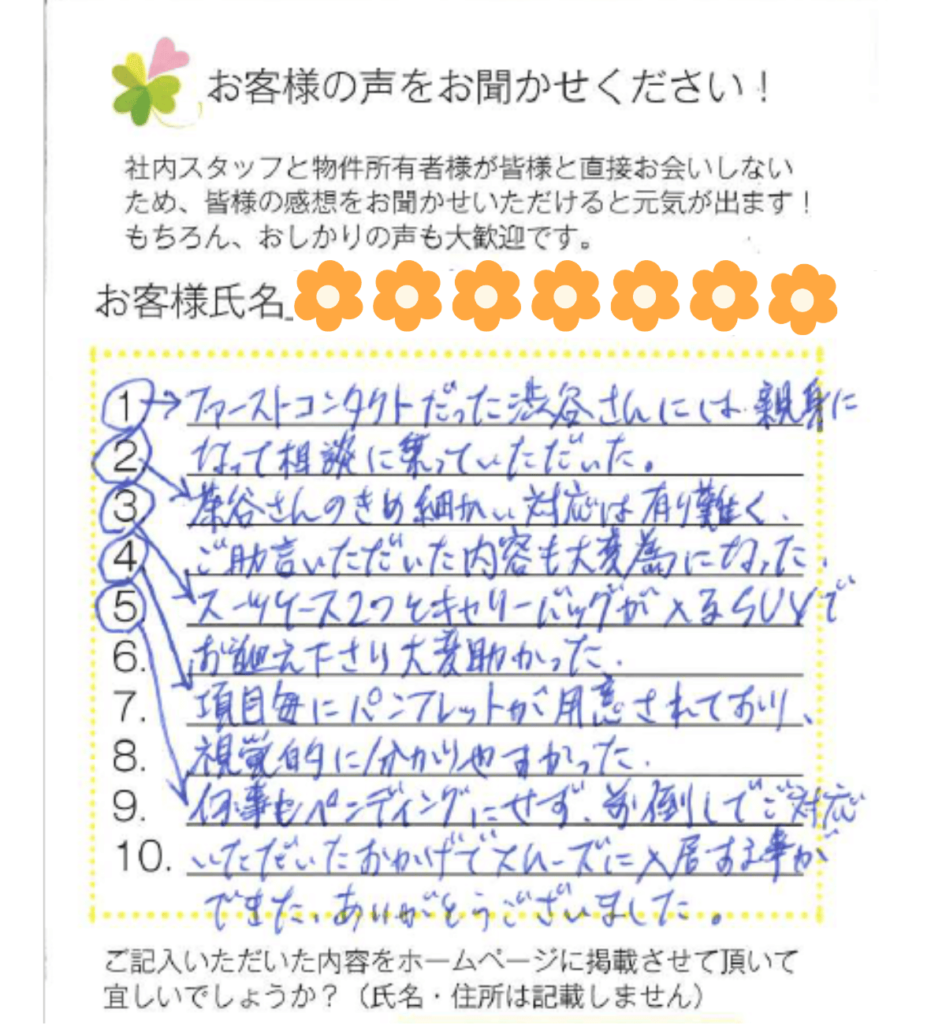 お客様の声をお聞かせください！
社内スタッフと物件所有者様が皆様と直接お会いしない
ため、皆様の感想をお聞かせいただけると元気が出ます！
もちろん、おしかりの声も大歓迎です。
お客様氏名
1 → ファーストコンタクトだった渋谷さんには親身に
2 なって相談に乗っていただいた。
3 茶谷さんのきめ細かい対応は有り難く、
4 ご助言いただいた内容も大変為になった。
5 スーツケース2つとキャリーバッグが入るSUVで
6. お迎え下さり大変助かった。
7. 項目毎にパンフレットが用意されており、
8. 視覚的に分かりやすかった。
9. 何事もペンディングにせず、前倒しでご対応
10. いただいたおかげでスムーズに入居する事が
できた、ありがとうございました。
ご記入いただいた内容をホームページに掲載させて頂いて
宜しいでしょうか？（氏名・住所は記載しません）